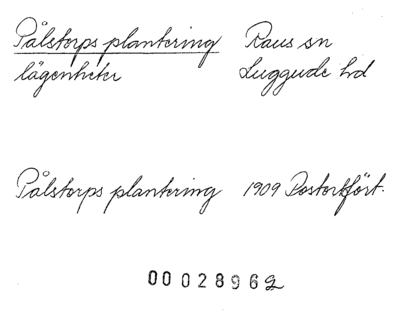 Pålstorps plantering Raus sn
lägenheter Luggude hd
Pålstorps plantering 1909 Postortfört.
00028962